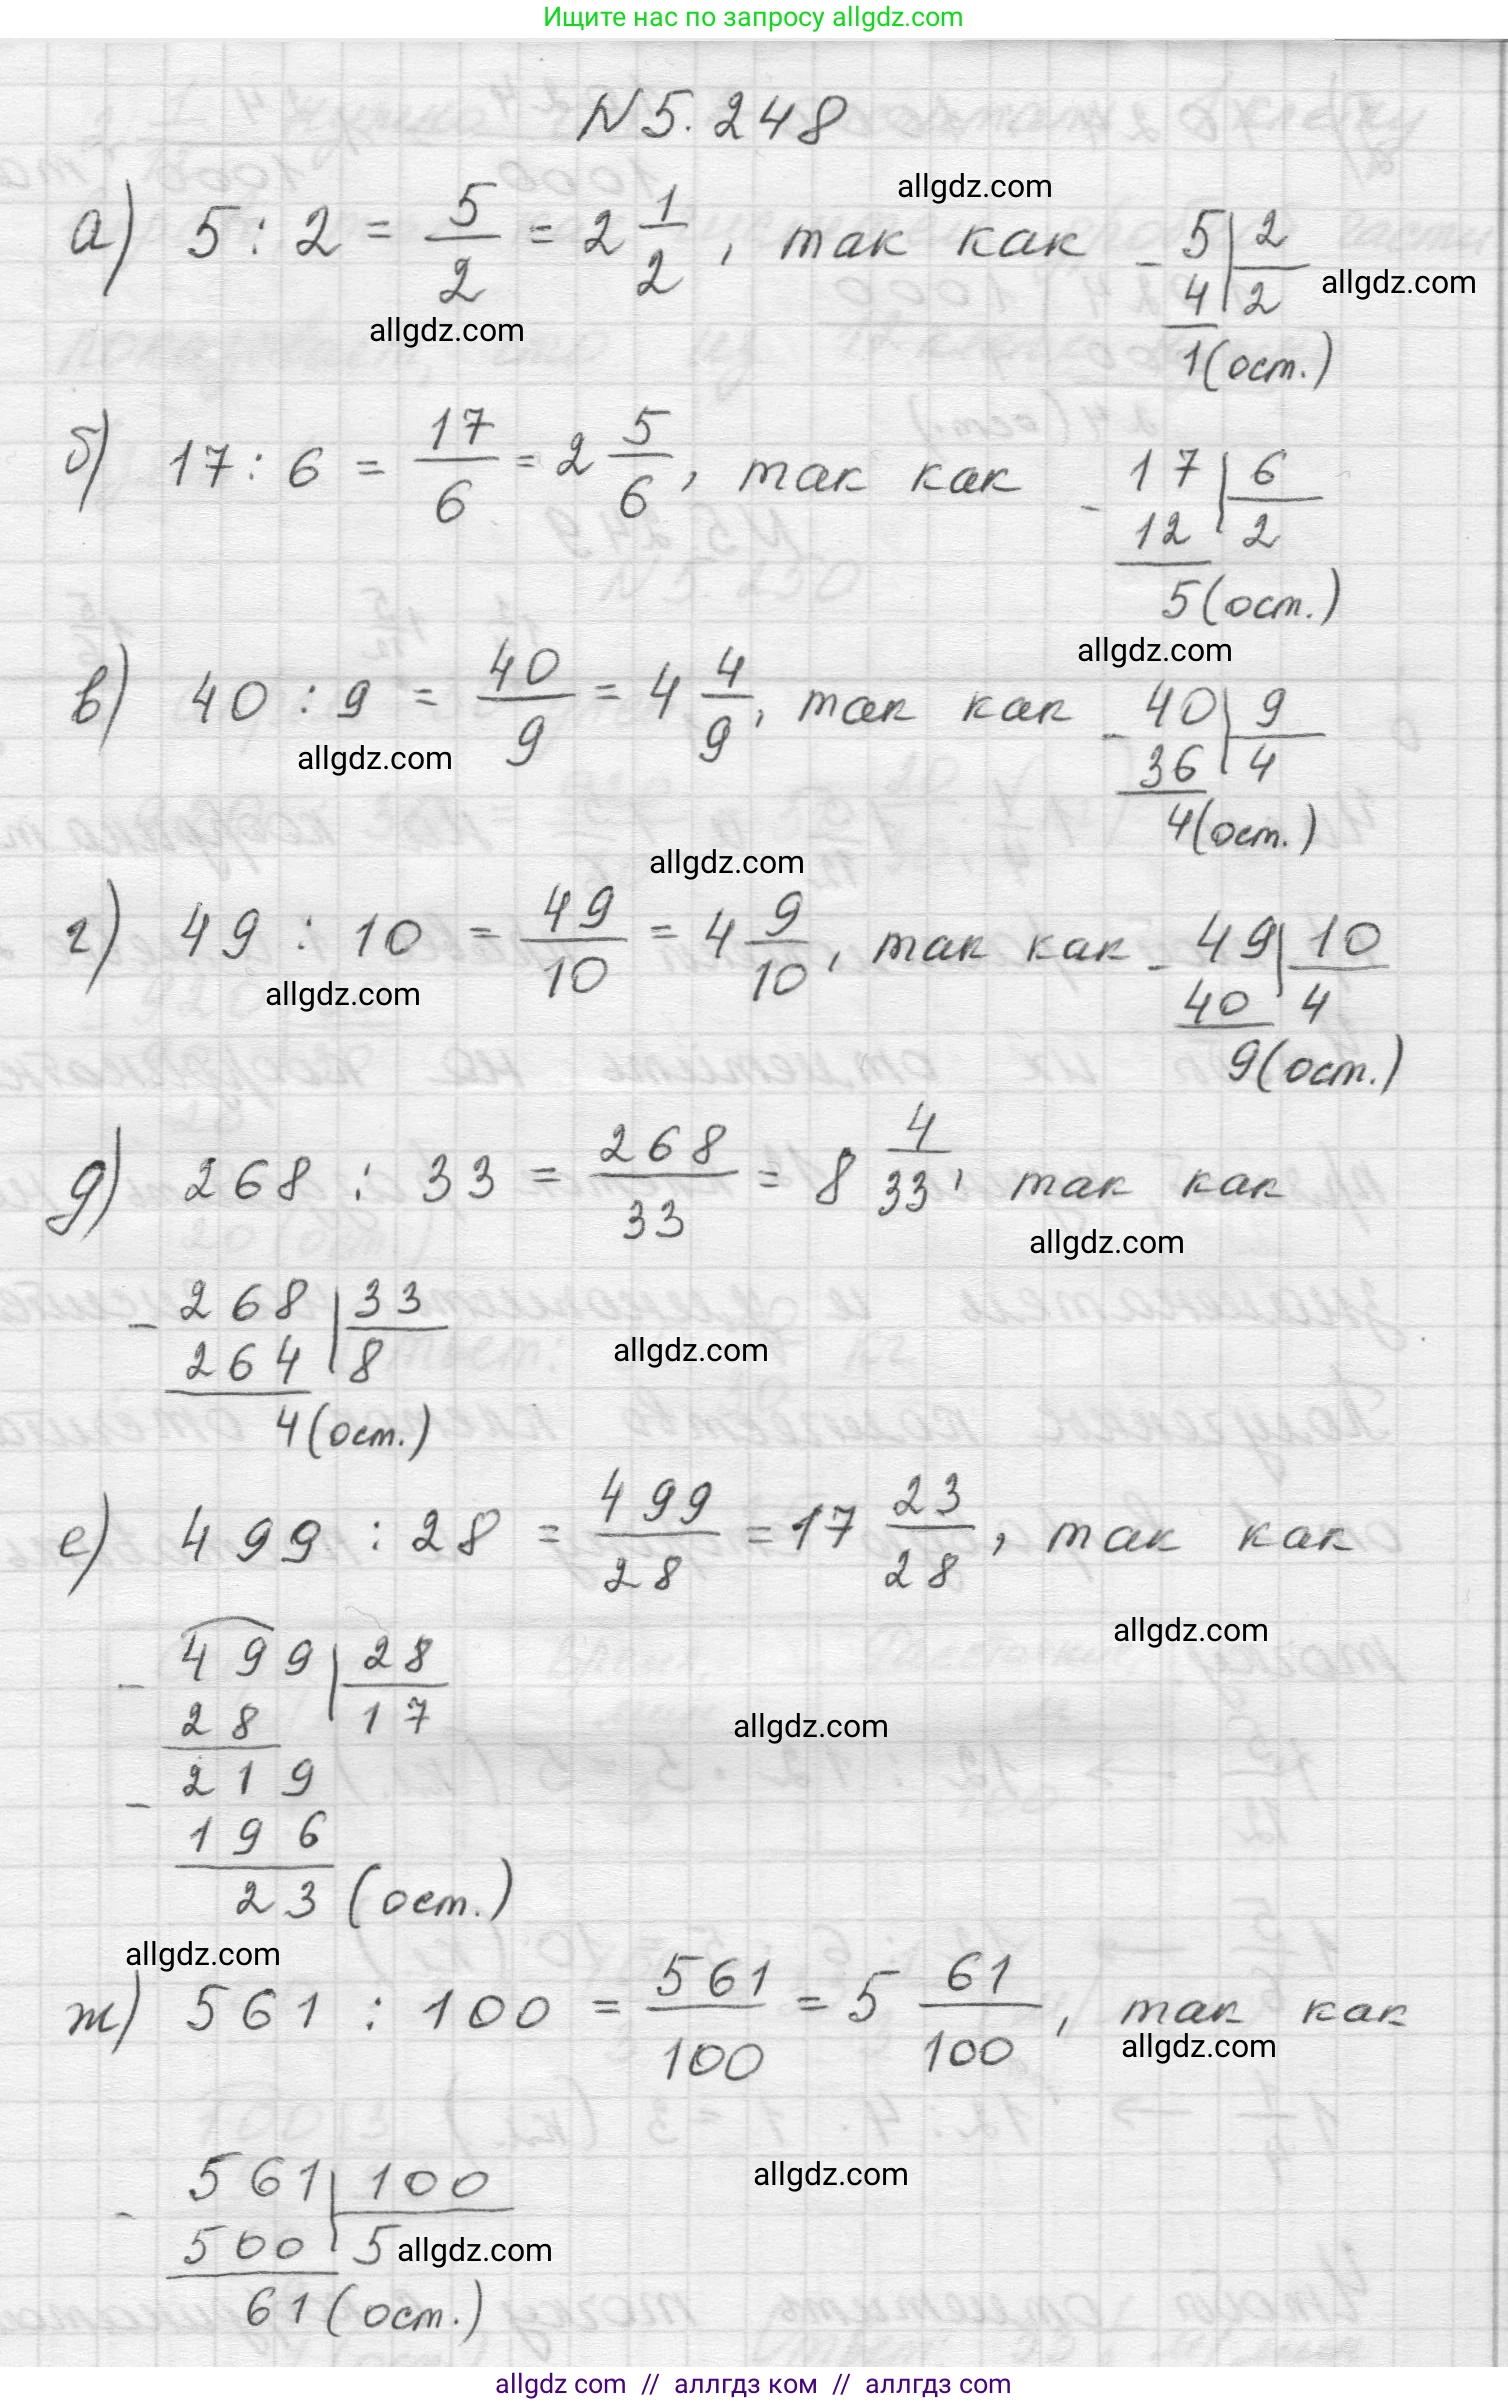 Ищите нас по запросу allgdz.com
N5.248
allgdz.com
а) 5 : 2 = 5/2 = 2 1/2, так как
5 | 2
- 4 | 2
1 (ост.)
allgdz.com
allgdz.com
б) 17 : 6 = 17/6 = 2 5/6, так как
17 | 6
- 12 | 2
5 (ост.)
allgdz.com
в) 40 : 9 = 40/9 = 4 4/9, так как
- 40 | 9
36 | 4
4 (ост.)
allgdz.com
allgdz.com
г) 49 : 10 = 49/10 = 4 9/10, так как
- 49 | 10
40 | 4
9 (ост.)
allgdz.com
д) 268 : 33 = 268/33 = 8 4/33, так как
allgdz.com
- 268 | 33
264 | 8
4 (ост.)
allgdz.com
е) 499 : 28 = 499/28 = 17 23/28, так как
allgdz.com
- 499 | 28
28 | 17
- 219
196
23 (ост.)
allgdz.com
allgdz.com
ж) 561 : 100 = 561/100 = 5 61/100, так как
allgdz.com
- 561 | 100
500 | 5
61 (ост.)
allgdz.com
allgdz.com
allgdz.com // аллгдз ком // аллгдз.com